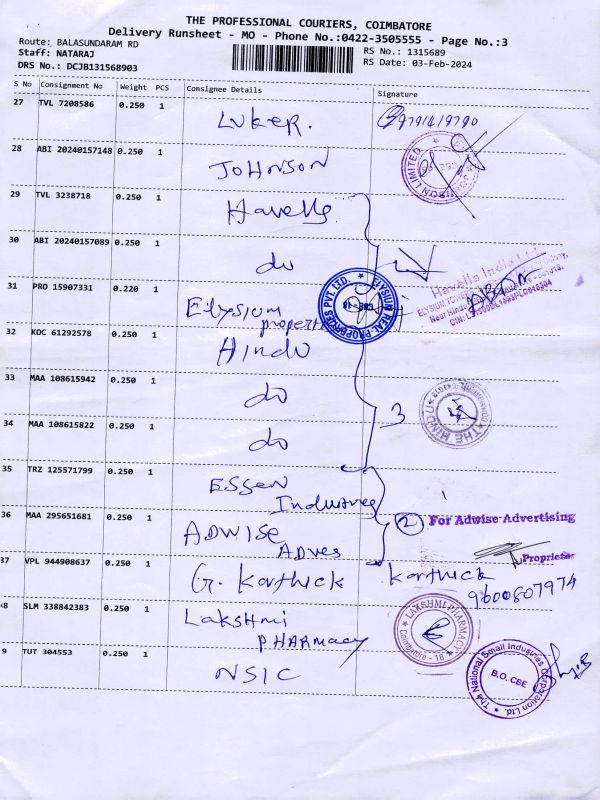 THE PROFESSIONAL COURIERS, COIMBATORE
Delivery Runsheet - MO - Phone No.:0422-3505555 - Page No.:3
Route: BALASUNDARAM RD
RS No.: 1315689
Staff: NATARAJ
RS Date: 03-Feb-2024
DRS No.: DCJB131568903
S No Consignment No Weight PCS Consignee Details Signature
27 TVL 7208586 0.250 1 Luker. 9791419790
28 ABI 20240157148 0.250 1 JOHNSON
29 TVL 3238718 0.250 1 Havells
30 ABI 20240157089 0.250 1 do
Havells India Ltd.
31 PRO 15907331 0.220 1 Elysium
properties
ELYSIUM REAL PROPERTIES PVT LTD.
32 KOC 61292578 0.250 1 Hindu
33 MAA 108615942 0.250 1 do
3
THE HINDU
34 MAA 108615822 0.250 1 do
35 TRZ 125571799 0.250 1 ESSEN
Industries
2 For Adwise Advertising
36 MAA 295651681 0.250 1 ADWISE
ADVES
Proprietor
37 VPL 944908637 0.250 1 G. Karthick Karthick
9600807974
38 SLM 338842383 0.250 1 Lakshmi
PHARMACY
LAKSHMI PHARMACY
Coimbatore - 18
9 TUT 304553 0.250 1 NSIC
The National Small Industries Corporation Ltd.
B.O. CBE